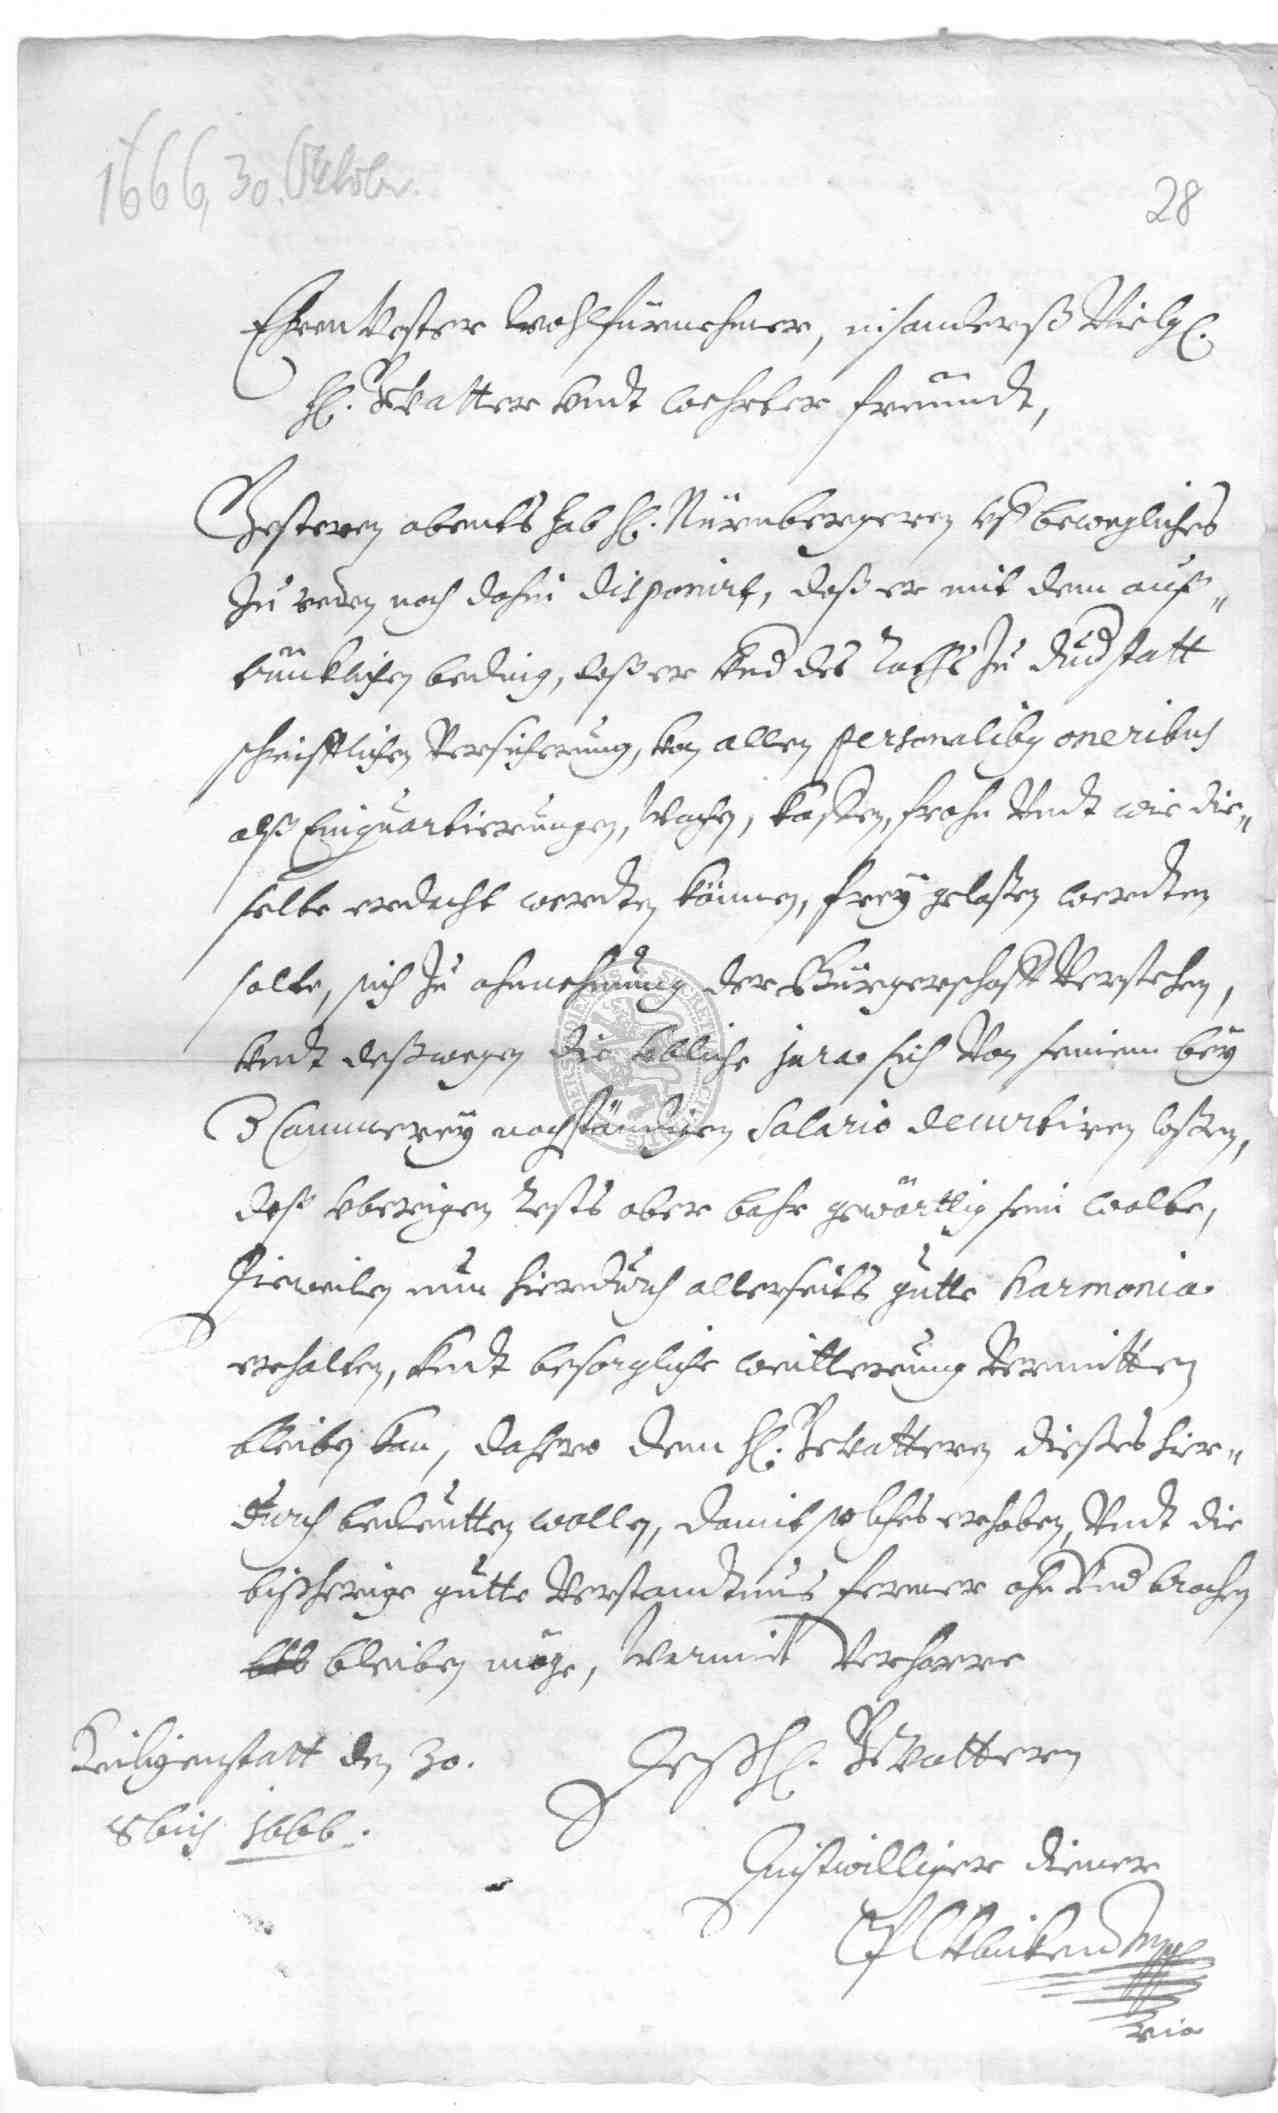 1666, 30. Oktober.
28
Ehrenvester Wohlfürnehmer, insonderß Vielg.
H. Gevatter undt wehrter freundt,
Gesteren abents hab H. Nürnbergeren vf bewegliches
Zu reden noch dahin disponirt, daß er mit dem auß„
trücklichen beding, daß er und des raths Zu Dudstatt
schrifftlichen Versicherung, von allen personalibus oneribus
alß Einquartierungen, Wachen, frohn Undt wie die„
selbe erdacht werdten können, frey gelaßen werdten
solte, sich Zu ahnnehmung der Bürgerschafft Verstehen,
undt deßwegen die übliche jura sich Von seinem bey
Cammerey nachständigen Salario decurtiren laßen,
deß überigen rests aber bahr gewärttig sein wolte,
Dieweilen nun hierdurch allerseits gutte harmonia
erhalten, undt besorgliche weitterung Vermitten
bleiben kan, dahero dem H. Gevatteren dießes hier„
durch bedeutten wollen, damit solches erhoben, Undt die
bißherige gutte Verstandtnus ferner ohnunderbrochen
bleiben möge, Warmit Verharre
Heiligenstatt den 30.
8bris 1666.
Deß H. Gevatteren
Dienstwilliger diener